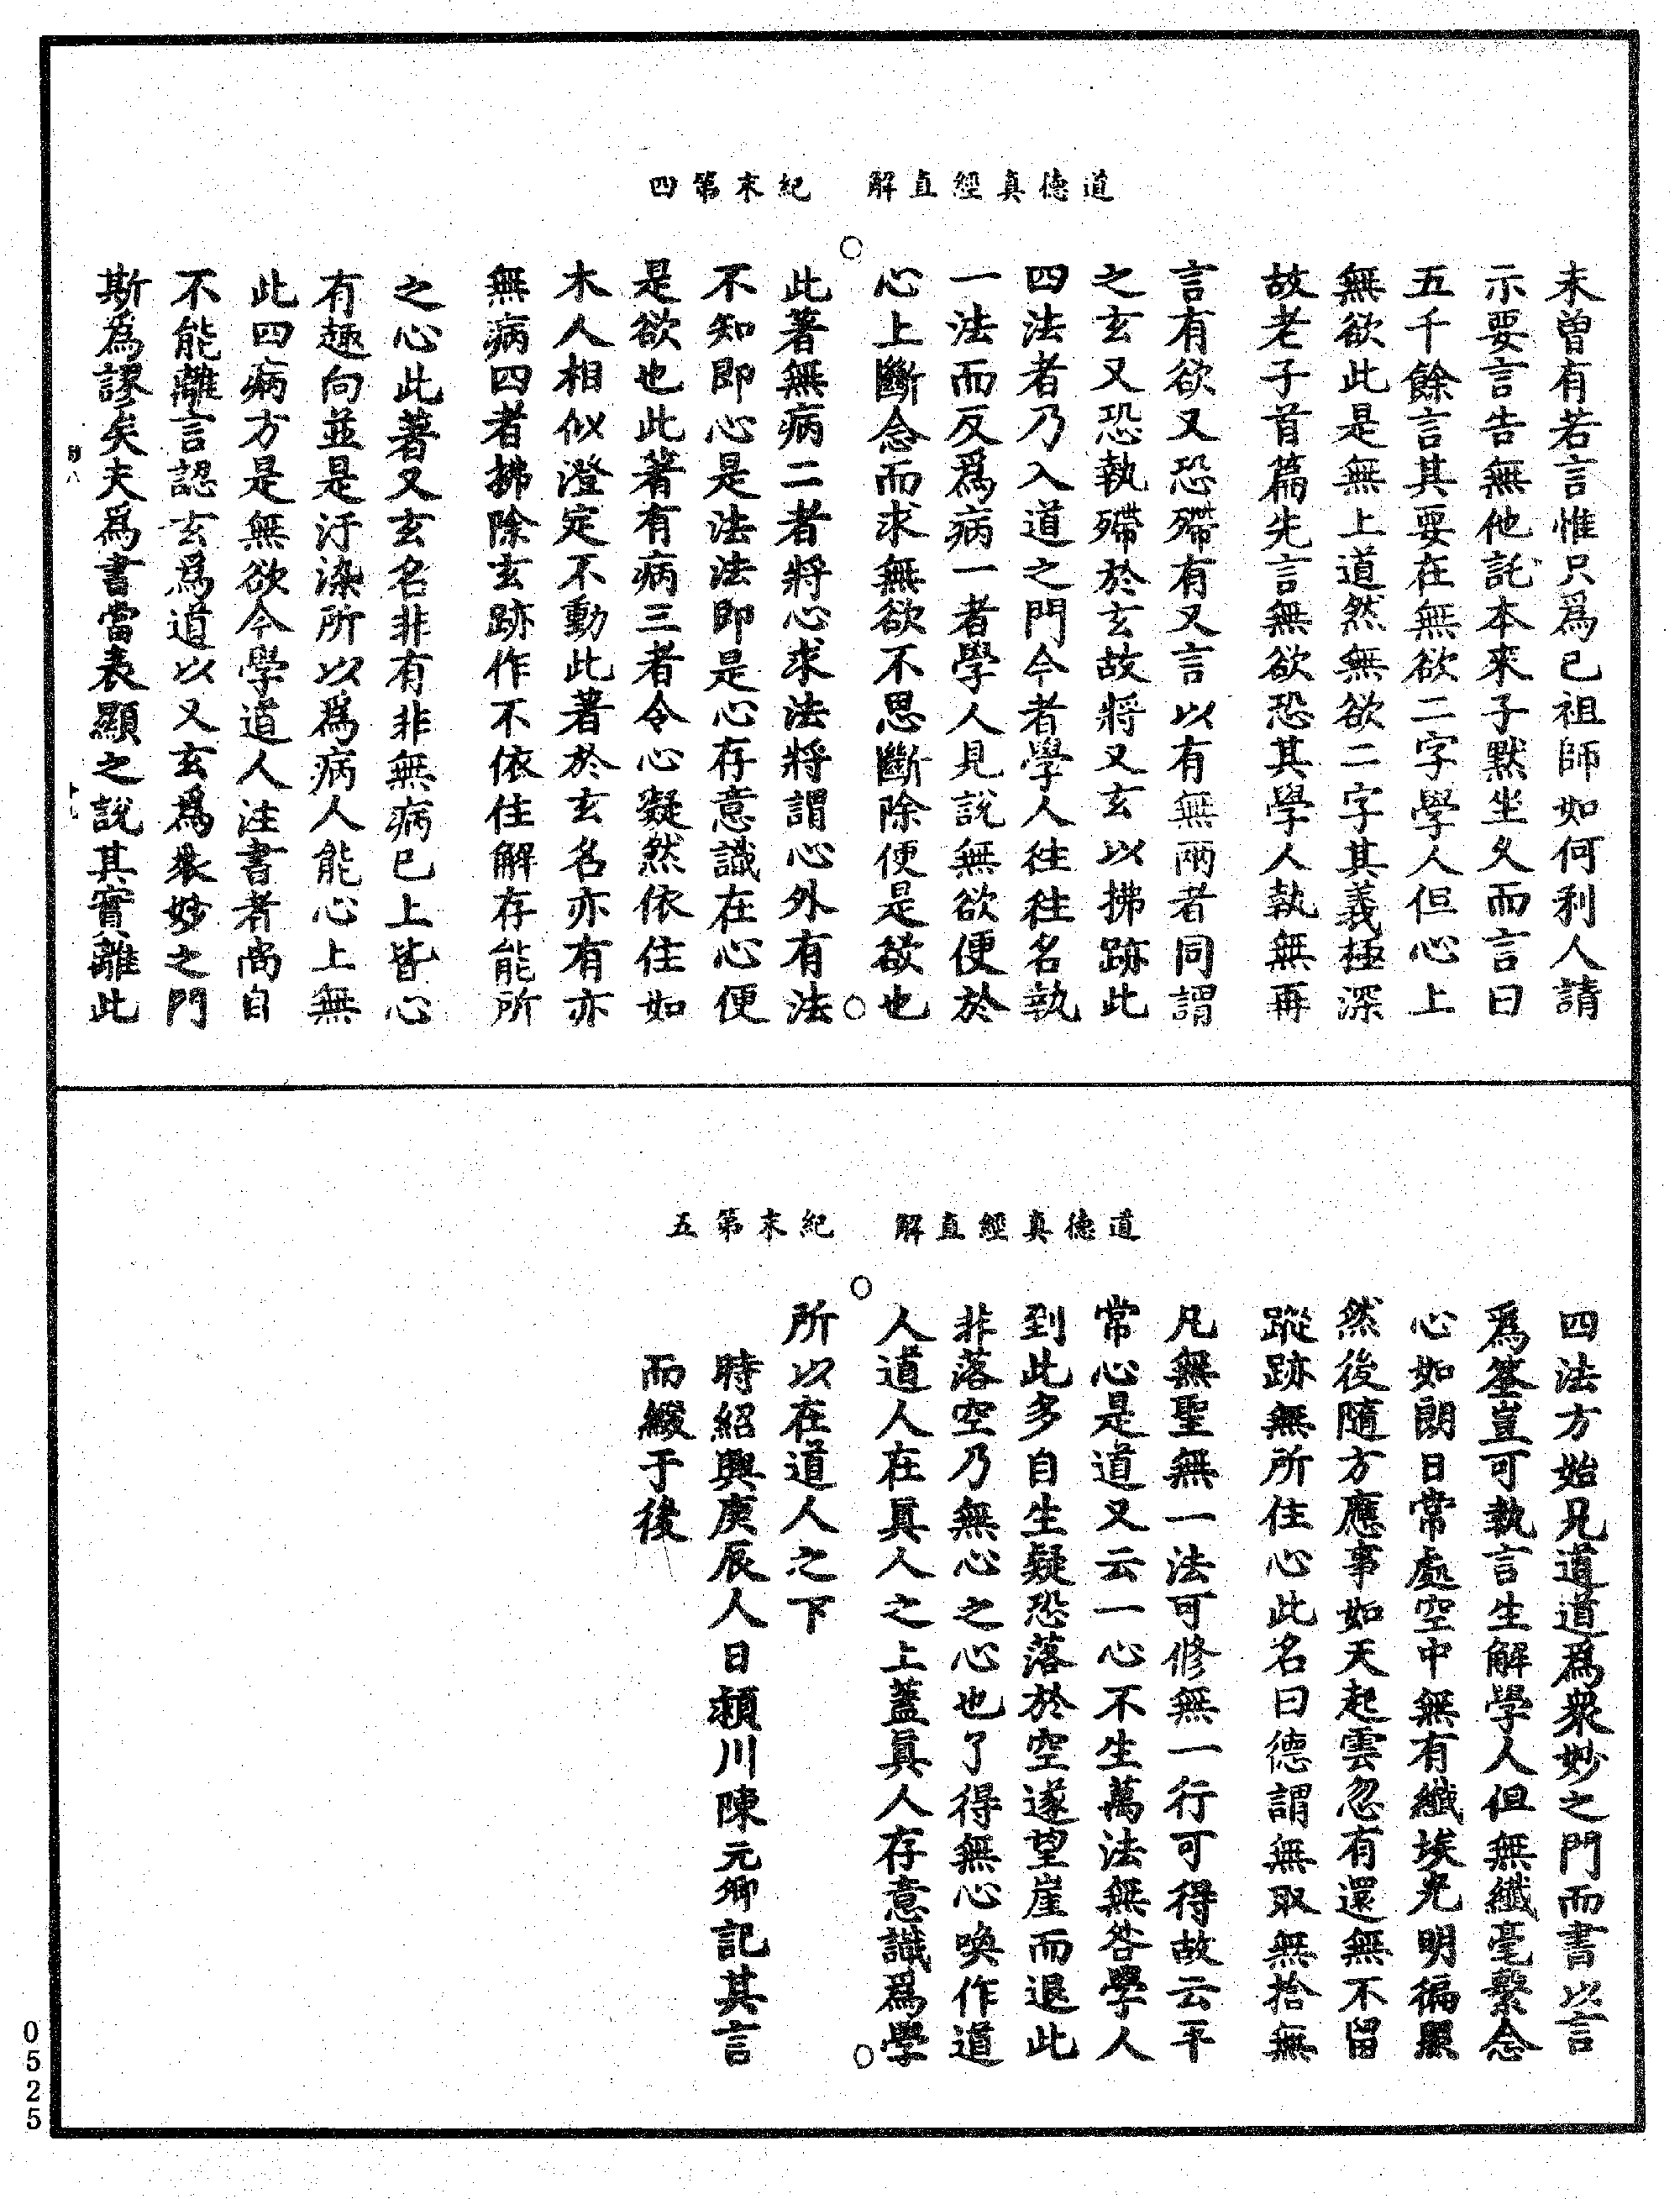 道德真經直解　紀末第四
未曾有若言惟只爲己祖師如何利人請
示要言告無他託本來子默坐久而言曰
五千餘言其要在無欲二字學人但心上
無欲此是無上道然無欲二字其義極深
故老子首篇先言無欲恐其學人執無再
言有欲又恐殢有又言以有無兩者同謂
之玄又恐執殢於玄故將又玄以拂跡此
四法者乃入道之門今者學人往往名執
一法而反爲病一者學人見說無欲便於
心上斷念而求無欲不思斷除便是欲也
此著無病二者將心求法將謂心外有法
不知即心是法法即是心存意識在心便
是欲也此著有病三者令心凝然依住如
木人相似澄定不動此著於玄名亦有亦
無病四者拂除玄跡作不依住解存能所
之心此著又玄名非有非無病已上皆心
有趣向並是汙染所以爲病人能心上無
此四病方是無欲今學道人注書者尚自
不能離言認玄爲道以又玄爲衆妙之門
斯爲謬矣夫爲書當表顯之說其實離此
道德真經直解　紀末第五
四法方始見道道爲衆妙之門而書以言
爲筌豈可執言生解學人但無纖毫繫念
心如朗日常處空中無有纖埃光明徧照
然後隨方應事如天起雲忽有還無不留
蹤跡無所住心此名曰德謂無取無捨無
凡無聖無一法可修無一行可得故云平
常心是道又云一心不生萬法無咎學人
到此多自生疑恐落於空遂望崖而退此
非落空乃無心之心也了得無心喚作道
人道人在眞人之上蓋眞人存意識爲學
所以在道人之下
時紹興庚辰人日潁川陳元卿記其言
而綴于後
0525